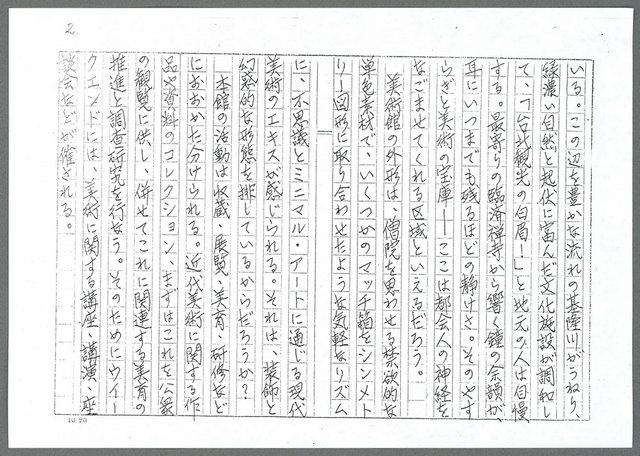 2
いる。この辺を豊かな流れの基隆川がうねり、
緑濃い自然と起伏に富んだ文化施設が調和し
て、「台北観光の白眉!」と地元の人は自慢
する。最寄りの臨済禅寺から響く鐘の余韻が、
耳にいつまでも残るほどの静けさ。そのやす
らぎと美術の宝庫——ここは都会人の神経を
なごませてくれる区域といえるだろう。
美術館の外形は、僧院を思わせる禁欲的な
単色素材で、いくつかのマッチ箱をシンメト
リー図形に取り合わせたような気軽なリズム
に、不思議とミニマル・アートに通じる現代
美術のエキスが感じられる。それは、装飾と
幻惑的な形態を排しているからだろうか?
本館の活動は収蔵・展覧・美育・研修など
におおかた分けられる。近代美術に関する作
品や資料のコレクション、まずはこれを公衆
の観覧に供し、併せてこれに関連する美育の
推進と調査研究を行なう。そのためにウイー
クエンドには、美術に関する講座、講演、座
談会などが催される。